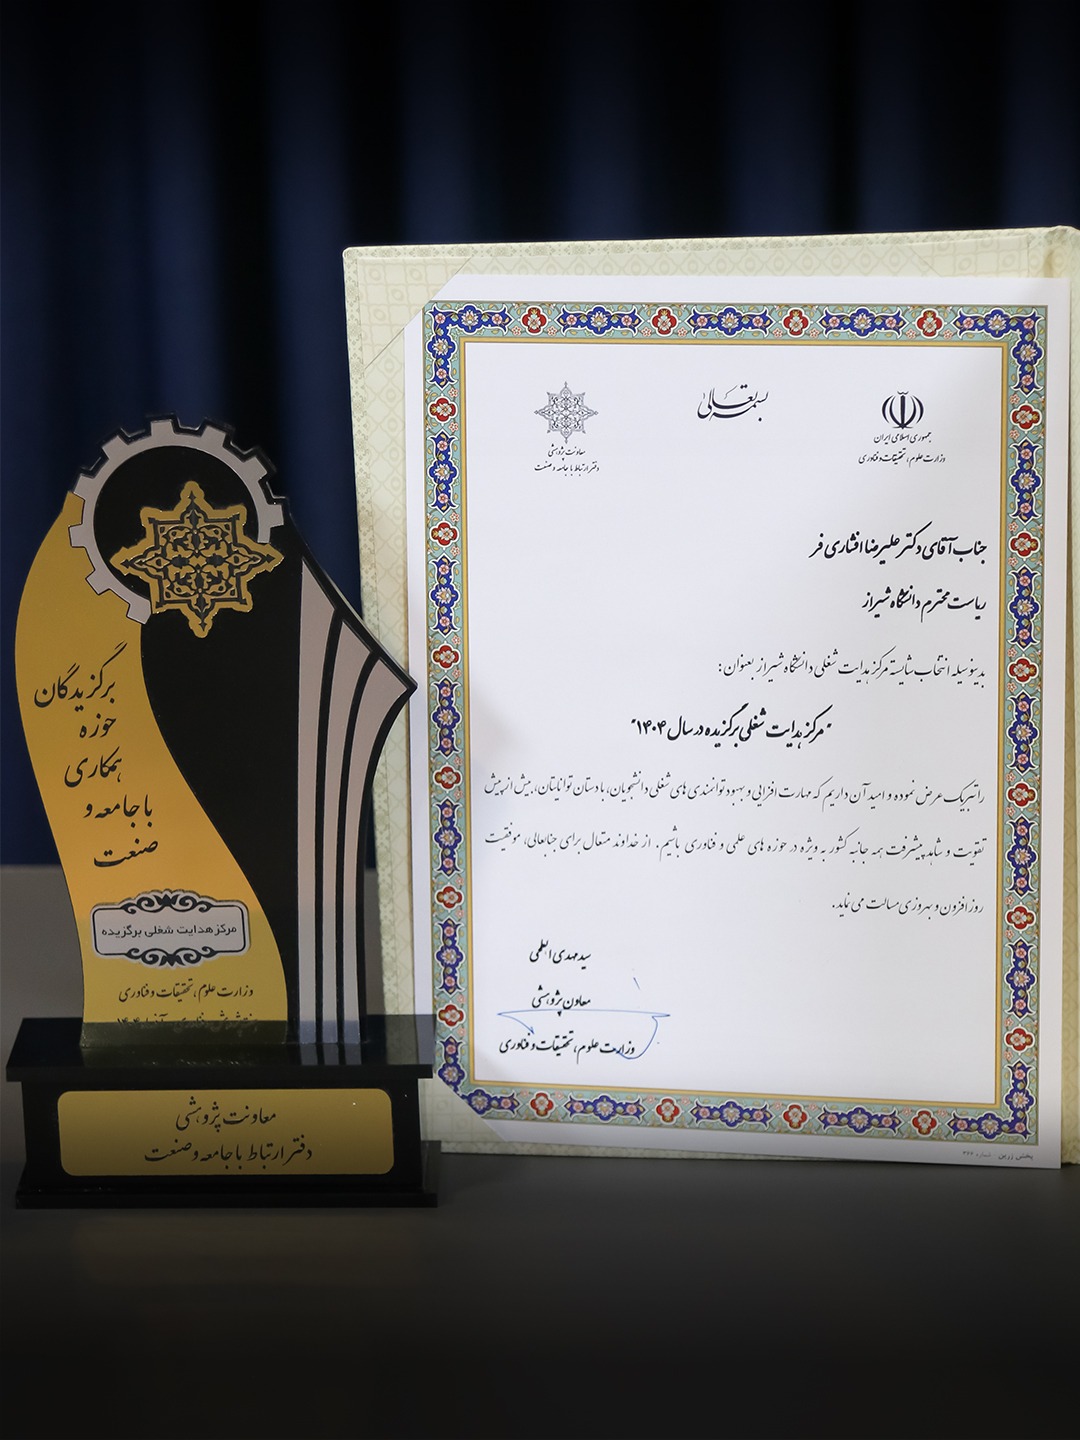 برگزیدگان
حوزه
همکاری
با جامعه و
صنعت
مرکز هدایت شغلی برگزیده
وزارت علوم، تحقیقات و فناوری
معاونت پژوهشی
دفتر ارتباط با جامعه و صنعت
بسمه تعالی
جمهوری اسلامی ایران
وزارت علوم، تحقیقات و فناوری
معاونت پژوهشی
دفتر ارتباط با جامعه و صنعت
جناب آقای دکتر علیرضا افشاری فر
ریاست محترم دانشگاه شیراز
بدینوسیله انتخاب شایسته مرکز هدایت شغلی دانشگاه شیراز بعنوان:
"مرکز هدایت شغلی برگزیده در سال ۱۴۰۴"
را تبریک عرض نموده و امید آن داریم که مهارت افزایی و بهبود توانمندی های شغلی دانشجویان، با دستان توانایتان، بیش از پیش
تقویت و شاهد پیشرفت همه جانبه کشور به ویژه در حوزه های علمی و فناوری باشیم. از خداوند متعال برای جنابعالی، موفقیت
روز افزون و بهروزی مسالت می نماید.
سید مهدی ابطحی
معاون پژوهشی
وزارت علوم، تحقیقات و فناوری
پخش زرین شماره ۳۶۶